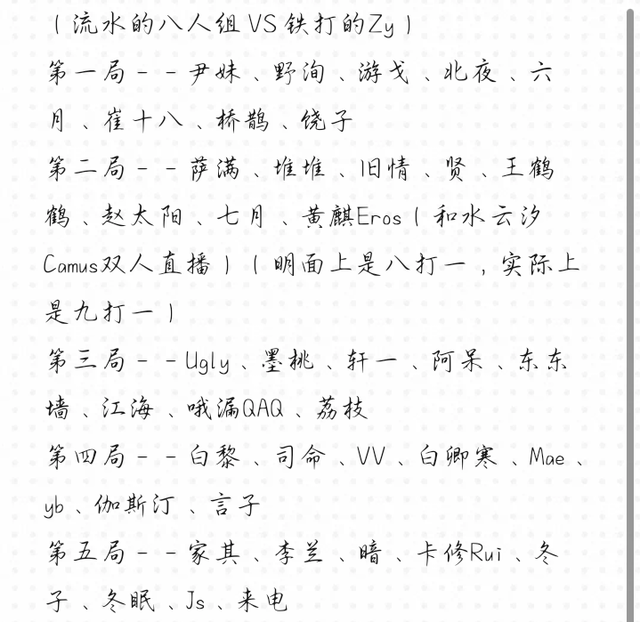 (流水的八人组 VS 铁打的Zy)
第一局--尹妹、野洵、游戈、北夜、六
月、崔十八、桥鹊、饶子
第二局--萨满、堆堆、旧情、贤、王鹤
鹤、赵太阳、七月、黄麒Eros(和水云汐
Camus双人直播)(明面上是八打一,实际上
是九打一)
第三局--Ugly、墨桃、轩一、阿呆、东东
墙、江海、哦漏QAQ、荔枝
第四局--白黎、司命、VV、白卿寒、Mae、
yb、伽斯汀、言子
第五局--家其、李兰、暗、卡修Rui、冬
子、冬眠、Js、来电